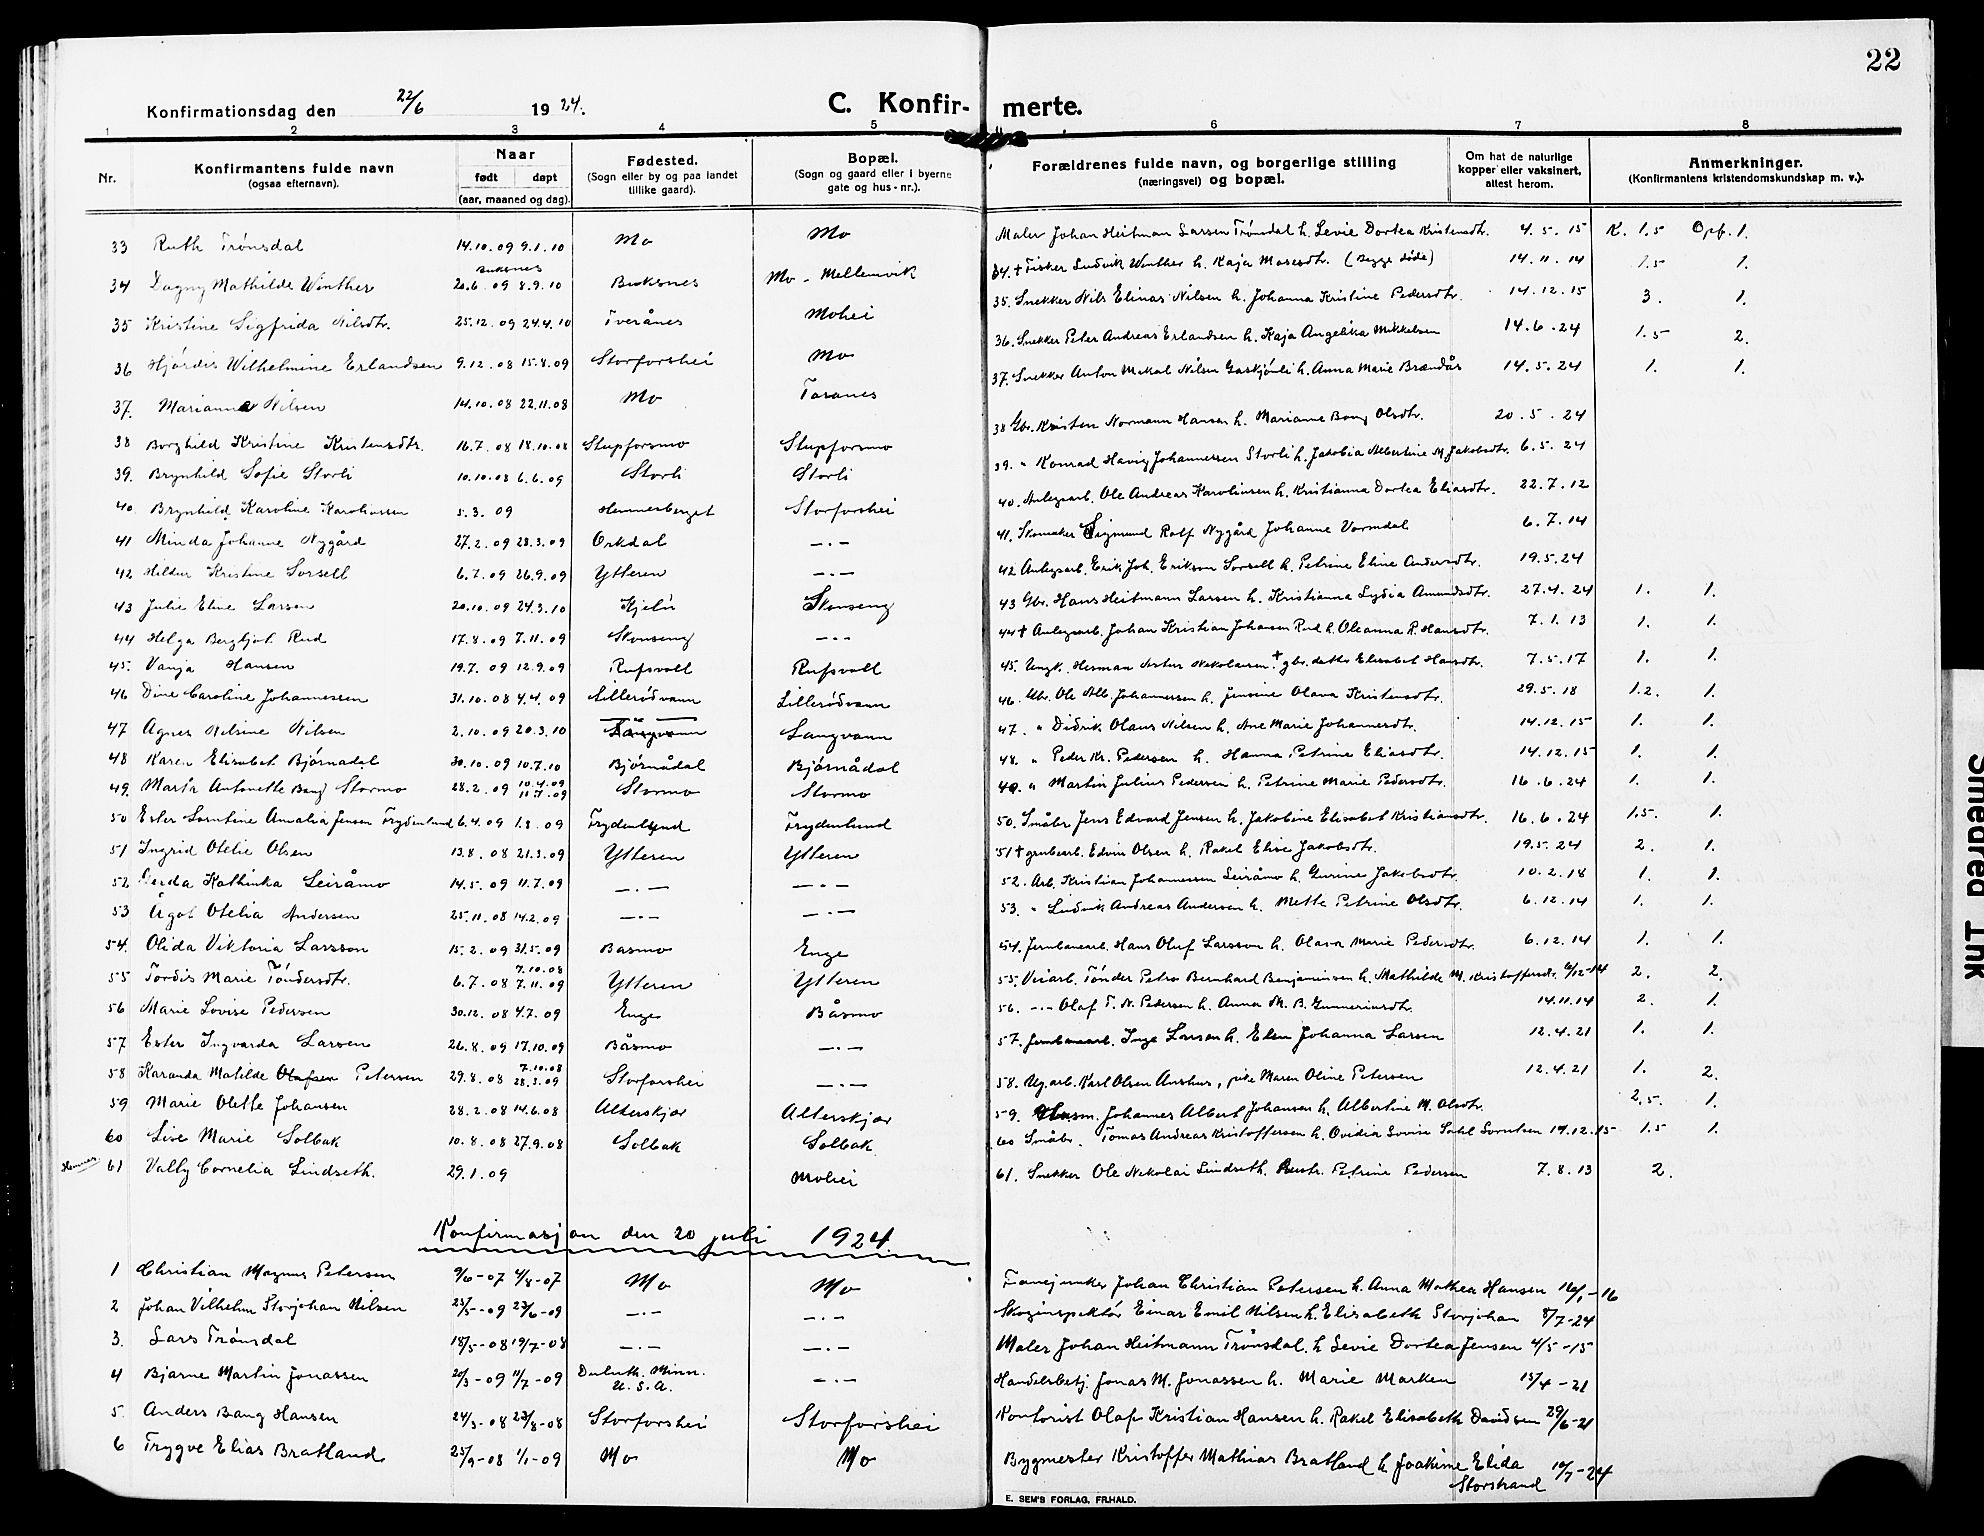 22
Konfirmationsdag den 22/6 1924. C. Konfir- merte.
1 2 3 4 5 6 7 8
Nr. Konfirmantens fulde navn (ogsaa efternavn). Naar født døpt (aar, maaned og dag). Fødested. (Sogn eller by og paa landet tillike gaard). Bopæl. (Sogn og gaard eller i byerne gate og hus-nr.). Forældrenes fulde navn, og borgerlige stilling (næringsvei) og bopæl. Om hat de naturlige kopper eller vaksinert, attest herom. Anmerkninger. (Konfirmantens kristendomskundskap m. v.).
33 Ruth Trønsdal 14.10.09 9.1.10 Mo Mo Maler Johan Heitman Larsen Trønsdal h. Levie Dortea Kristensdtr. 4.5.15 K. 1.5 Opf. 1.
34 Dagny Mathilde Winther 20.6.09 Buksnes 8.9.10 Buksnes Mo - Mellemvik 34. + Fisker Ludvik Winther h. Kaja Mosesdtr. (Begge døde) 14.11.14 1.5 1.
35 Kristine Sigfrida Nilsdtr. 25.12.09 24.4.10 Tverånes Mohei 35. Snekker Nils Elinas Nilsen h. Johanna Kristine Pedersdtr. 14.12.15 3. 1.
36 Hjørdis Wilhelmine Erlandsen 9.12.08 15.8.09 Storforshei Mo 36. Snekker Peter Andreas Erlandsen h. Kaja Angelika Mikkelsen 14.6.24 1.5 2.
37. Marianne Nilsen 14.10.08 22.11.08 Mo Toranes 37. Snekker Anton Mikal Nilsen Gaskjønli h. Anna Marie Brændås 14.5.24 1. 1.
38 Borghild Kristine Kristensdtr. 16.7.08 18.10.08 Stupforsmo Stupforsmo 38 Gbr. Kristen Normann Hansen h. Marianne Bang Olsdtr. 20.5.24
39. Brynhild Sofie Storli 10.10.08 6.6.09 Storli Storli 39. " Konrad Havig Johannessen Storli h. Jakobia Albertine M. Jakobsdtr. 6.5.24
40. Brynhild Karoline Karoliussen 5.3.09 Hemnesberget Storforshei 40. Anlegsarb. Ole Andreas Karoliusen h. Kristianna Dortea Eliasdtr. 22.7.12
41 Minda Johanne Nygård 27.2.09 28.3.09 Orkdal —.— 41. Skomaker Sigmund Rolf Nygård Johanne Vormdal 6.7.14
42 Hildur Kristine Sorsell 6.7.09 26.9.09 Ytteren —.— 42 Anlegsarb. Erik Joh. Erikson Sorsell h. Petrine Eline Andersdtr. 19.5.24
43 Julie Eline Larsen 20.10.09 24.3.10 Skonseng 43 Gbr. Hans Heitmann Larsen h. Kristianna Lydia Amundsdtr. 27.4.24 1. 1.
44 Helga Bergljot Rud 17.8.09 7.11.09 Skonseng —.— 44 + Anlegsarb. Johan Kristian Johansen Rud h. Oleanna R. Hansdtr. 7.1.13 1. 1.
45. Vanja Hansen 19.7.09 12.9.09 Rufsvoll Rufsvoll 45. Ungk. Herman Nikolaisen + gbr. datter Elisabet Hansdtr. 7.5.17 1. 1.
46 Dine Caroline Johannessen 31.10.08 4.4.09 Lillerødvann Lillerødvann 46. Gbr. Ole Alb. Johannessen h. Jensine Olava Kristensdtr. 29.5.18 1.2. 1.
47 Agnes Nilsine Nilsen 2.10.09 20.3.10 Langvann Langvann 47. " Didrik Olaus Nilsen h. Ane Marie Johannesdtr. 14.12.15 1. 1.
48 Karen Elisabet Bjørnådal 30.10.09 10.7.10 Bjørnådal Bjørnådal 48. " Peder Kr. Pedersen h. Hanna Petrine Eliasdtr. 14.12.15 1. 1.
49. Marta Antonette Bang Stormo 28.2.09 10.4.09 11.7.09 Stormo Stormo 49. " Martin Julius Pedersen h. Petrine Marie Pedersdtr. 16.6.24 1. 1.
50 Ester Lorntine Amalia Jensen Frydenlund 6.4.09 1.8.09 Frydenlund Frydenlund 50. Småbr. Jens Edvard Jensen h. Jakobine Elisabet Kristiansdtr. 16.6.24 1.5. 1.
51 Ingrid Otelie Olsen 13.8.08 21.3.09 Ytteren Ytteren 51 + grubearb. Edvin Olsen h. Rakel Elise Jakobsdtr. 19.5.24 2. 1.
52 Gerda Kathinka Leiråmo 14.5.09 11.7.09 —.— —.— 52. Arb. Kristian Johannessen Leiråmo h. Gurine Jakobsdtr. 10.2.18 1. 1.
53 Ågot Otelia Andersen 25.11.08 14.2.09 —.— —.— 53. " Ludvik Andreas Andersen h. Mette Petrine Olsdtr. 6.12.14 1. 1.
54. Olida Viktoria Larsson 15.2.09 31.5.09 Båsmo Enge 54. Jernbanearb. Hans Oluf Larsson h. Olava Marie Pedersdtr. 6.12.14 1. 1.
55 Tordis Marie Tøndersdtr. 6.7.08 7.10.08 7.11.09 Ytteren Ytteren 55. Veiarb. Tønder Petro Bernhard Benjaminsen h. Mathilde M. Kristoffersdtr. 6/12-14 2. 2.
56 Marie Lovise Pedersen 30.12.08 4.7.09 Enge Båsmo 56. —.— Olaf T. N. Pedersen h. Anna M. B. Gunneriusdtr. 14.11.14 2. 1.
57 Ester Ingvarda Larsen 26.8.09 17.10.09 Båsmo —.— 57. Jernbanearb. Inge Larsen h. Elen Johanna Larsen 12.4.21 1. 1.
58 Karanda Matilde Olafsen Petersen 29.8.08 7.10.08 28.3.09 Storforshei —.— 58. Ug. arb. Karl Olsen Aushus, pike Maren Oline Petersen 12.4.21 1. 2.
59 Marie Olette Johansen 28.2.08 14.6.08 Alterskjær Alterskjær 59. Husm. Johannes Albert Johansen h. Albertine M. Olsdtr. 2.5. 1.
60 Lise Marie Solbak 10.8.08 27.9.08 Solbak Solbak 60 Småbr. Tomas Andreas Kristoffersen h. Ovidia Lovise Dahl Lorntsen 14.12.15 1.5 1.
Hemnes 61 Vally Cornelia Lindseth. 29.1.09 Mohei 61. Snekker Ole Nikolai Lindseth. Hustr. Petrine Pedersen 7.8.13 2.
Konfirmasjon den 20 juli 1924
1 Christian Magnus Petersen 9/6-07 4/8-07 Mo Mo Fanejunker Johan Christian Petersen h. Anna Mathea Hansen 16/1-16
2 Johan Vilhelm Storjohan Nilsen 23/5-09 27/6-09 —.— —.— Skoginspektør Einar Emil Nilsen h. Elisabeth Storjohan 8/7-24
3. Lars Trønsdal 18/5-08 19/7-08 —.— —.— Maler Johan Heitmann Trønsdal h. Levie Dortea Jensen 4/5-15
4 Bjarne Martin Jonassen 20/3-09 11/7-09 Duluth. Minn. U.S.A. —.— Handelsbetj. Jonas M. Jonassen h. Marie Marken 13/4-21
5. Anders Bang Hansen 24/3-08 23/8-08 Storforshei Storforshei Kontorist Olaf Kristian Hansen h. Rakel Elisabeth Davidsen 29/6-21
6 Trygve Elias Bratland 25/9-08 1/1-09 Mo Mo Bygmester Kristoffer Mathias Bratland h. Joakime Elida Storstrand 10/7-24
E. SEM'S FORLAG, FR.HALD.
Smedred Trk